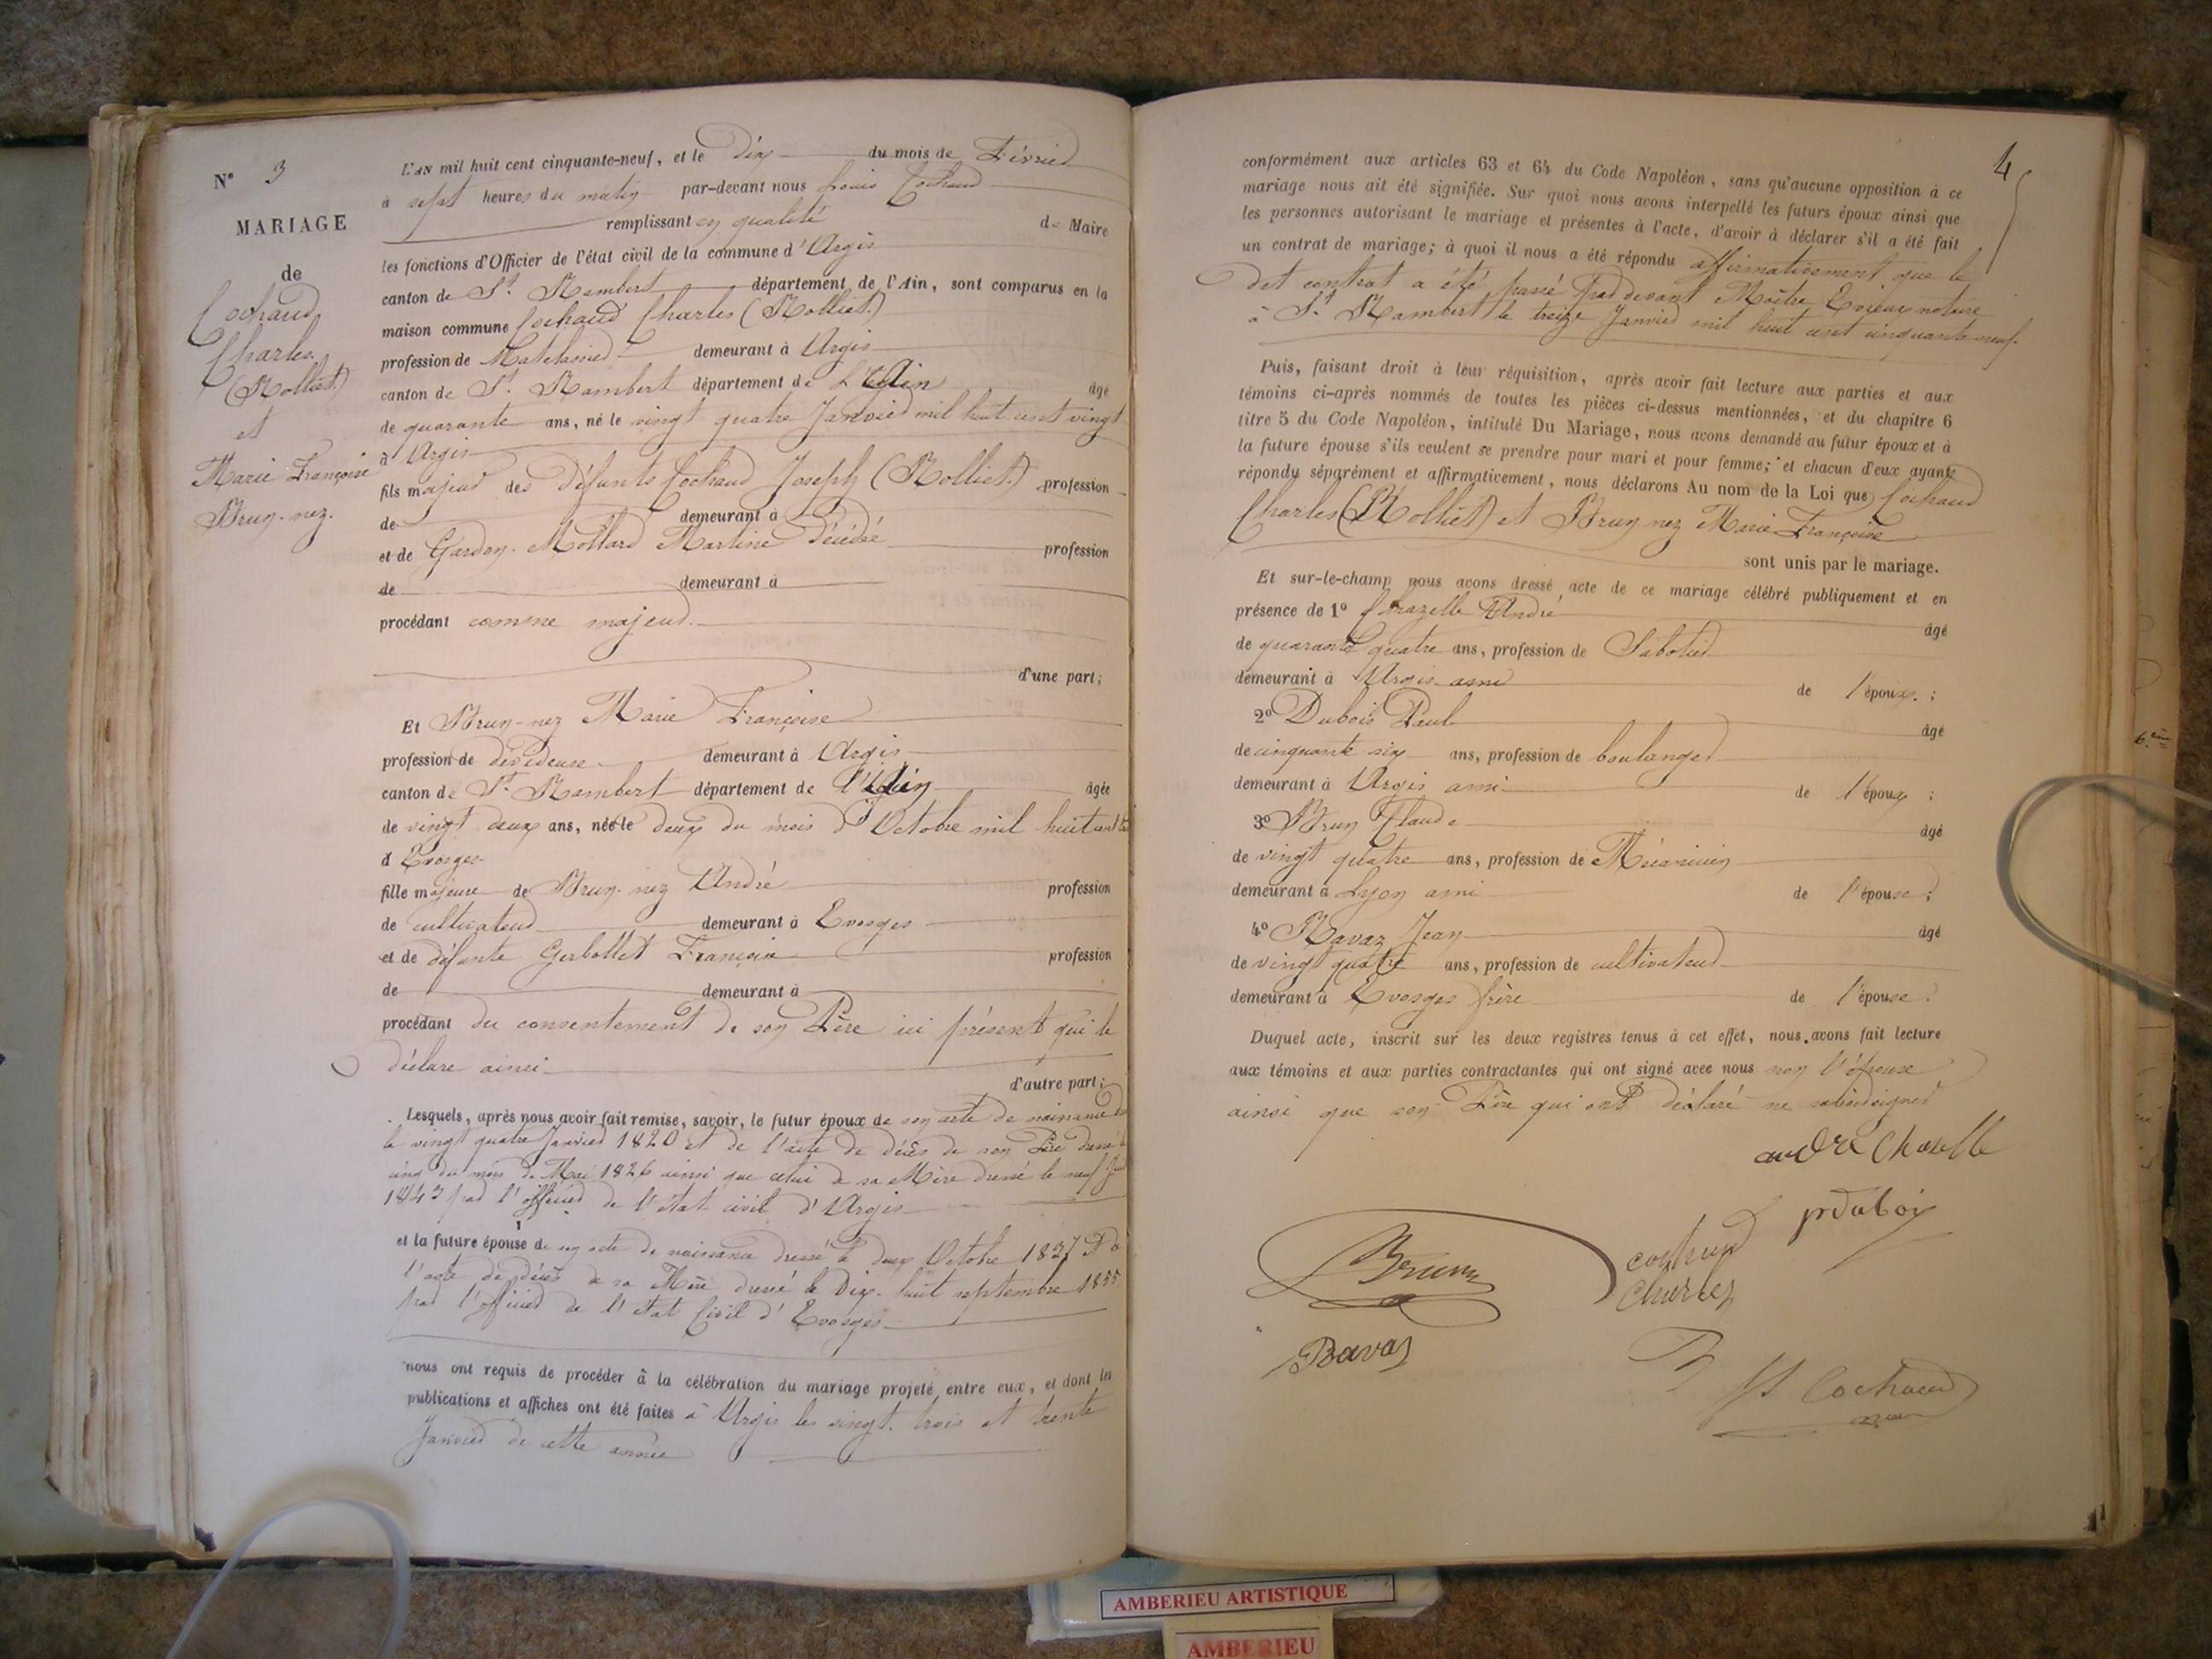 N° 3
MARIAGE
de
Cochaud
Charles
(Rolliet)
et
Marie Françoise
Brun-nez.
L'AN mil huit cent cinquante-neuf, et le dix du mois de Février
à sept heures du matin par-devant nous Louis Cochaud
remplissant en qualité de Maire
les fonctions d'Officier de l'état civil de la commune d'Argis
canton de St. Rambert département de l'Ain, sont comparus en la
maison commune Cochaud Charles (Rolliet)
profession de Matelassier demeurant à Argis
canton de St. Rambert département de L'Ain âgé
de quarante ans, né le vingt quatre Janvier mil huit cent vingt
à Argis
fils majeur des défunts Cochaud Joseph (Rolliet) profession
de demeurant à
et de Gardon-Mollard Martine décédée profession
de demeurant à
procédant comme majeur.
d'une part;
Et Brun-nez Marie Françoise
profession de dévideuse demeurant à Argis
canton de St. Rambert département de l'Ain âgée
de vingt deux ans, née le deux du mois d'Octobre mil huit cent
à Evosges
fille majeure de Brun-nez André profession
de cultivateur demeurant à Evosges
et de défunte Gerbollet Françoise profession
de demeurant à
procédant du consentement de son Père ici présent qui le
déclare ainsi
d'autre part;
Lesquels, après nous avoir fait remise, savoir, le futur époux de son acte de naissance
le vingt quatre Janvier 1820 et de l'acte de décès de son Père dressé
cinq du mois de Mai 1826 ainsi que celui de sa Mère dressé le neuf
1843 par l'officier de l'état civil d'Argis
et la future épouse de son acte de naissance dressé le deux Octobre 1837 et de
l'acte de décès de sa Mère dressé le Dix-huit septembre 1855
par l'officier de l'état Civil d'Evosges
nous ont requis de procéder à la célébration du mariage projeté entre eux, et dont les
publications et affiches ont été faites à Argis les vingt-trois et trente
Janvier de cette année
4
conformément aux articles 63 et 64 du Code Napoléon, sans qu'aucune opposition à ce
mariage nous ait été signifiée. Sur quoi nous avons interpellé les futurs époux ainsi que
les personnes autorisant le mariage et présentes à l'acte, d'avoir à déclarer s'il a été fait
un contrat de mariage; à quoi il nous a été répondu affirmativement que le
dit contrat a été passé par devant Maître notaire
à St. Rambert le treize Janvier mil huit cent cinquante neuf.
Puis, faisant droit à leur réquisition, après avoir fait lecture aux parties et aux
témoins ci-après nommés de toutes les pièces ci-dessus mentionnées, et du chapitre 6
titre 5 du Code Napoléon, intitulé Du Mariage, nous avons demandé au futur époux et à
la future épouse s'ils veulent se prendre pour mari et pour femme; et chacun d'eux ayant
répondu séparément et affirmativement, nous déclarons Au nom de la Loi que Cochaud
Charles (Rolliet) et Brun nez Marie Françoise
sont unis par le mariage.
Et sur-le-champ nous avons dressé acte de ce mariage célébré publiquement et en
présence de 1° Chazelle André âgé
de quarante quatre ans, profession de Sabotier
demeurant à Argis ami de l'époux;
2° Dubois Paul âgé
de cinquante six ans, profession de boulanger
demeurant à Argis ami de l'époux;
3° Brun Claude âgé
de vingt quatre ans, profession de Mécanicien
demeurant à Lyon ami de l'épouse;
4° Ravaz Jean âgé
de vingt quatre ans, profession de cultivateur
demeurant à Evosges frère de l'épouse;
Duquel acte, inscrit sur les deux registres tenus à cet effet, nous avons fait lecture
aux témoins et aux parties contractantes qui ont signé avec nous non l'épouse
ainsi que son Père qui ont déclaré ne
andré Chaselle
pduboi
Brun
cochaud
Charles
Ravaz
Cochaud
AMBERIEU ARTISTIQUE
AMBERIEU